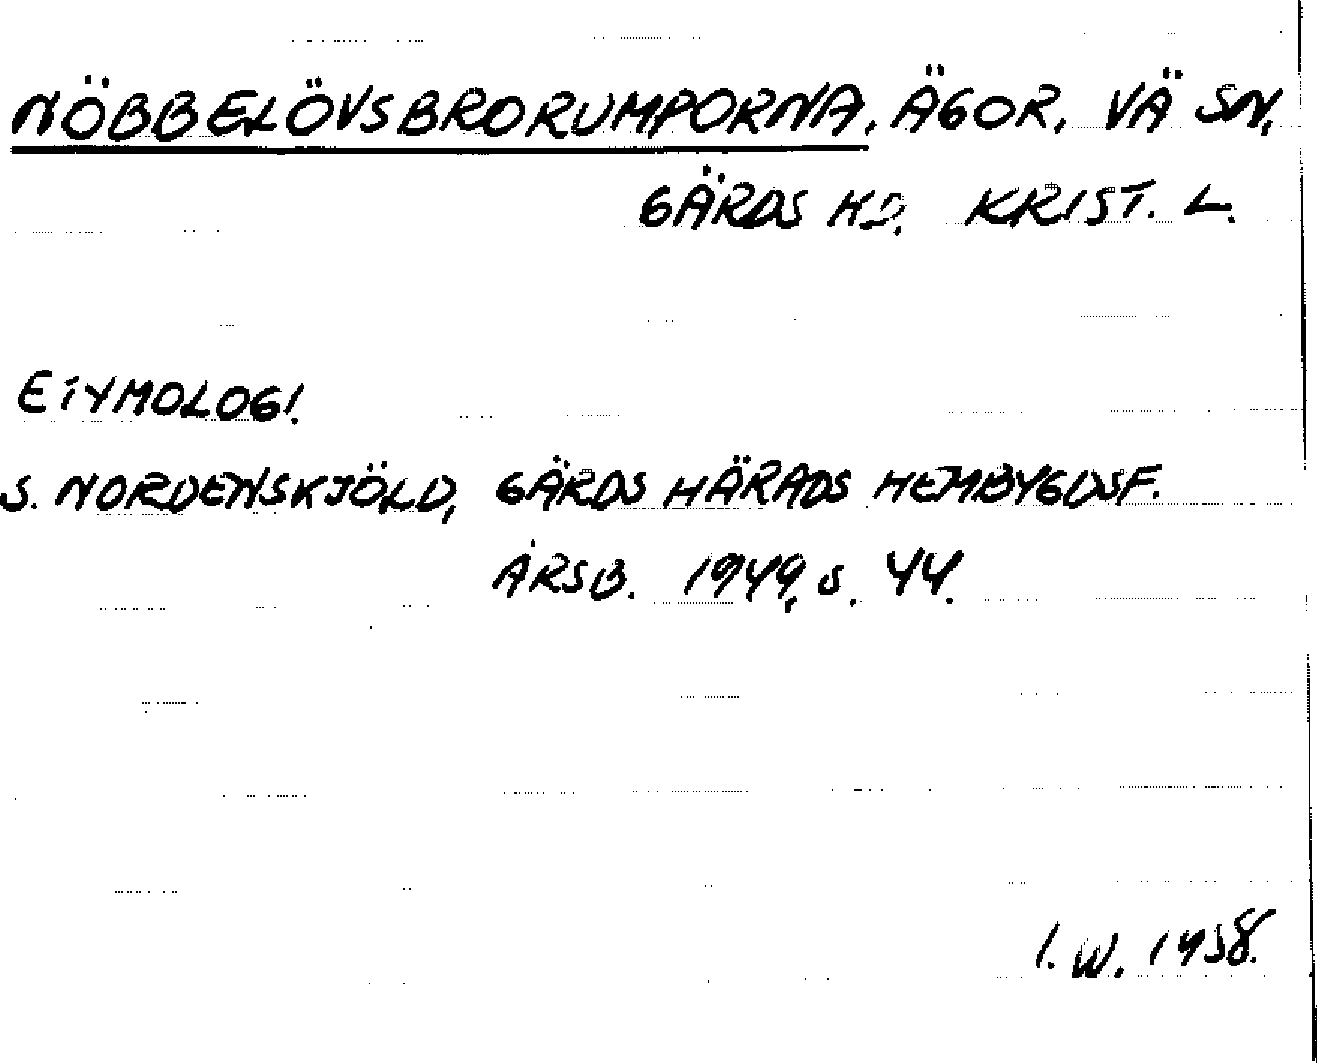 NÖBBELÖVSBRORUMPORNA, ÄGOR, VÄ SN,
GÄRDS HD, KRIST. L.
ETYMOLOGI.
S. NORDENSKJÖLD, GÄRDS HÄRADS HEMBYGDSF.
ÅRSB. 1949, s. 44.
I. W. 1958.